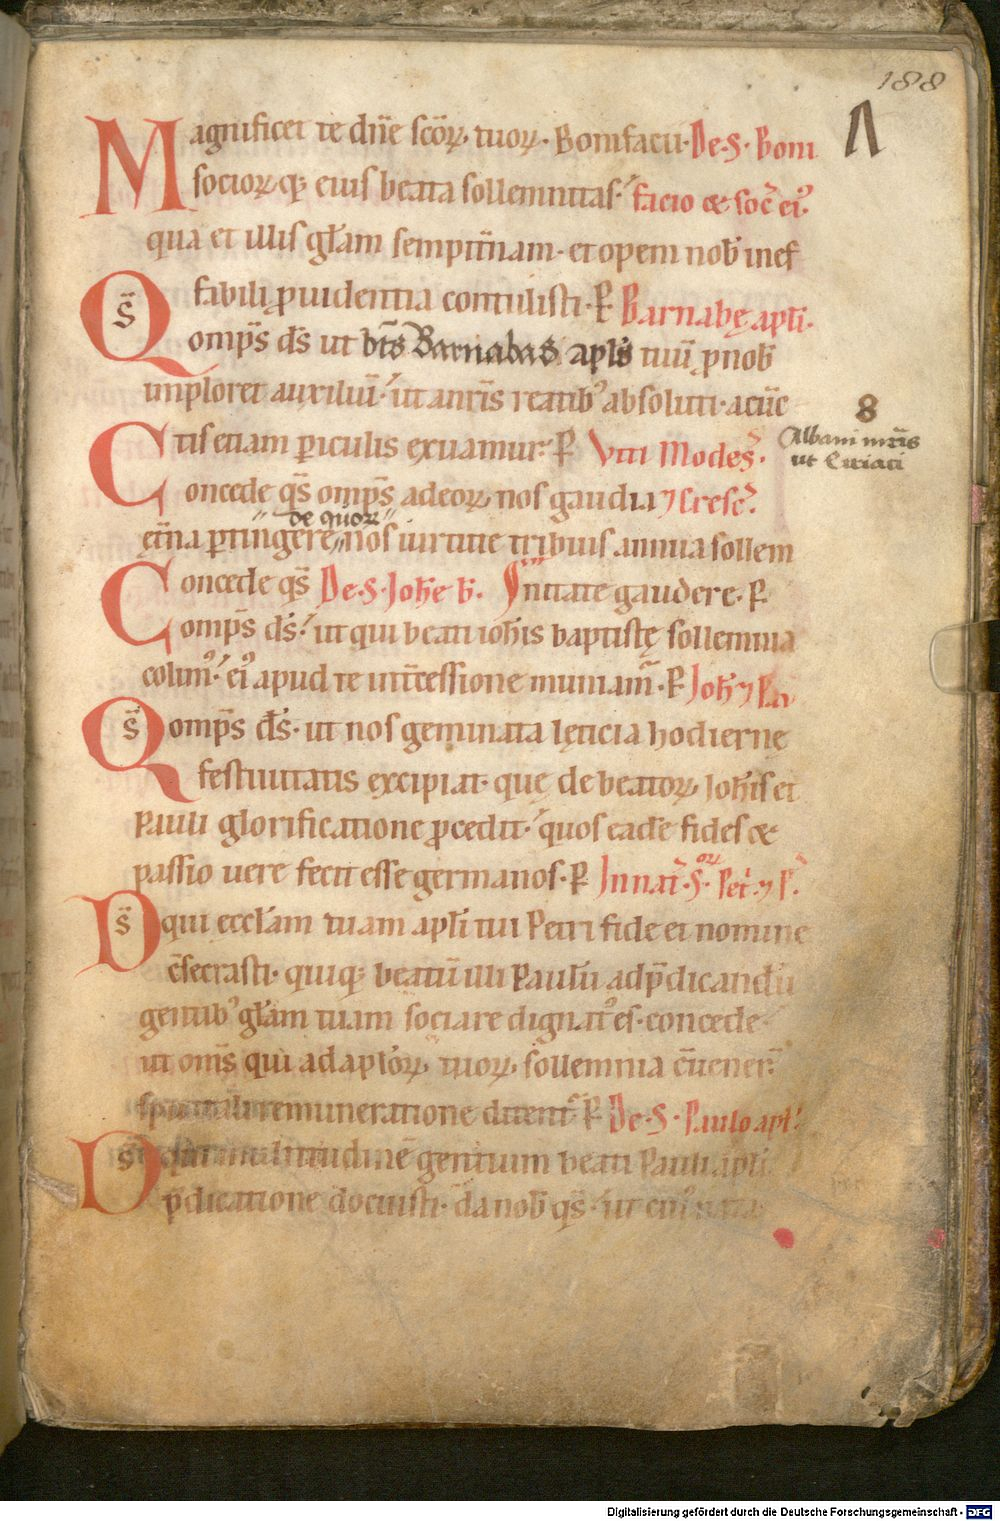 188
Magnificet te dn̄e scōꝝ tuoꝝ. Bonifacii. De. S. Boni
socioꝝq; eius beata sollemnitas. facio & soc̄ ei9.
qua et illis gl̄am sempit̄nam. et opem nob̄ inef
fabili ꝓuidentia contulisti. P̱ Barnabę apl̄i.
Qs̄ omp̄s ds̄ ut bt̄s Barnabas apl̄s tuū ꝓ nob̄
imploret auxiliū. ut a nr̄is reatib9 absoluti. a cūc
tis etiam ꝑiculis exuamur. P̱ Viti Modes̄.
Concede qs̄ omp̄s ad eoꝝ nos gaudia ⁊ cresc̄.
8
Albani mr̄is
ut Ciriaci
de quoꝝ
ęt̄na ꝑtingere, nos uirtute tribuis annua sollem
Concede qs̄ De. S. Joh̄e b. nitate gaudere. P̱
omp̄s ds̄. ut qui beati ioh̄is baptistę sollemnia
colim9. ei9 apud te int̄cessione muniam̄. P̱ Joh̄ ⁊ Pa
Qs̄ omp̄s ds̄. ut nos geminata lęticia hodiernę
festiuitatis excipiat. quę de beatoꝝ Joh̄is et
Pauli glorificatione ꝓcedit. quos eadē fides &
passio uere fecit esse germanos. P̱ In nat̄. S. oꝝ Pet̄. ⁊ P.
Ds̄ qui eccl̄am tuam apl̄i tui Petri fide et nomine
c̄secrasti. quiq; beatū illi Paulū ad p̄dicandū
gentib9 gl̄am tuam sociare dignat9 es. concede
ut om̄s qui ad apl̄oꝝ tuoꝝ sollemnia c̄uener̄
spiritali remuneratione ditent̄. P̱ De. S. Paulo apl̄.
Ds̄ qui multitudinē gentium beati Pauli apl̄i
p̄dicatione docuisti. da nob̄ qs̄. ut cui9 nata
Digitalisierung gefördert durch die Deutsche Forschungsgemeinschaft - DFG